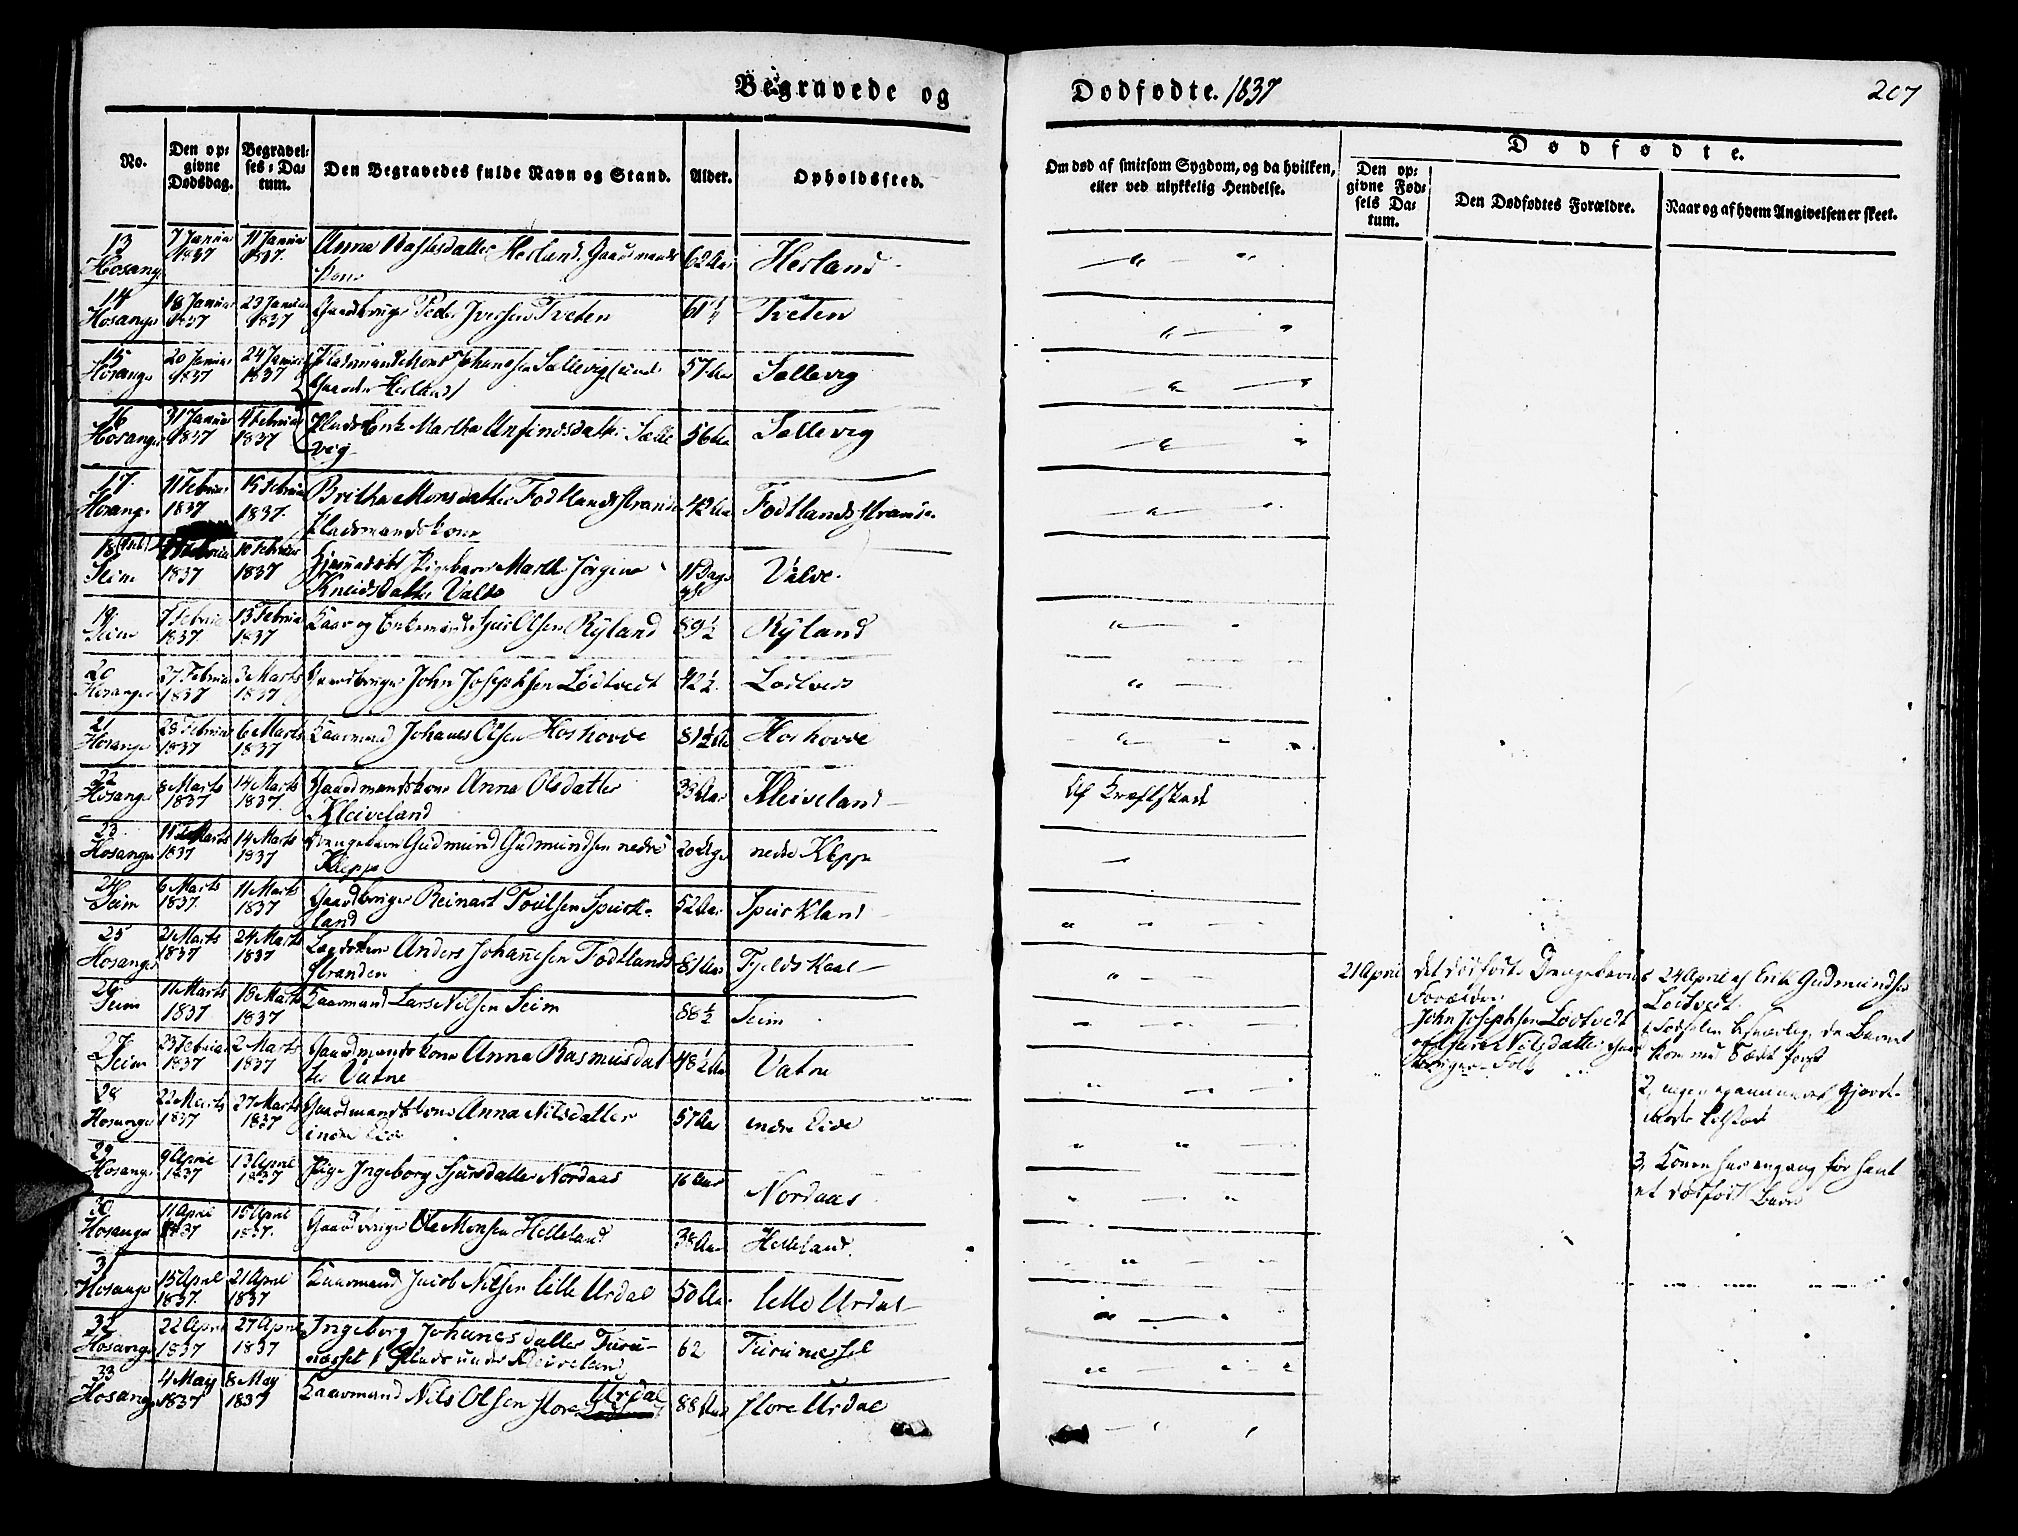 Begravede og
Dødfødte. 1837
207
No.
Den opgivne Dødsdag.
Begravelses-Datum.
Den Begravedes fulde Navn og Stand.
Alder.
Opholdssted.
Om død af smitsom Sygdom, og da hvilken,
eller ved ulykkelig Hendelse.
Dødfødte.
Den opgivne Fødsels Datum.
Den Dødfødtes Forældre.
Naar og af hvem Angivelsen er skeet.
13 7 Januar 11 Januar Anna Herland Gaardmands
Hosanger 1837 1837. Kone 62 Aar Herland
14 18 Januar 23 Januar Gaardbruger Peder Iversen Tveten 61 Tveten
Hosanger 1837 1837
15 20 Januar 24 Januar Pladsmand Mons Johannesen Sællevig under 57 Aar Sællevig
Hosanger 1837 1837 Gaarden Herland
16 31 Januar 4 Februar Plads Enke Martha Anfindsdatter Sælle 56 Aar Sællevig
Hosanger 1837 1837 vig
17. 11 Februar 15 Februar Britha Monsdatter Fodtlandsstranden 42 Aar Fodtlandsstranden
Hosanger 1837 1837. Pladsmandskone
18 Februar 18 Februar Hjemmedøbt Pigebarn Marthe Jørgine 11 Dage Valve
Seim 1837 1837 Kneidsdatter
19 7 Februar 13 Februar Kaar og Enkemand Sjur Olsen Ryland 89½ Ryland
Seim 1837 1837
20 27 Februar 3 Marts Gaardbruger John Josephsen Lodtvedt 42½ Lodtvedt
Hosanger 1837 1837
21 28 Februar 6 Marts Kaarmand Johanes Olsen Hoshovde 81½ Aar Hoshovde
Hosanger 1837 1837
22 8 Marts 14 Marts Gaardmandskone Anna Olsdatter 33 Aar Kleiveland
Hosanger 1837 1837. Kleiveland
Af
23. 11 Marts 14 Marts Drengebarn Gudmund Gudmundsen nedre 20 Dage nedre Kleppe
Hosanger 1837 1837 Kleppe
24 6 Marts 11 Marts Gaardbruger Reinart Poulsen Spurk- 52 Aar Spurkland
Seim 1837. 1837 land
25 21 Marts 24 Marts Anders Johannesen Fodtlands 81 Aar Fjeldskaal
Hosanger 1837 1837 stranden
26 11 Marts 18 Marts Kaarmand Lars Nilsen Seim 88½ Seim
Seim 1837 1837
27 23 Februar 2 Marts Gaardmandskone Anna Rasmusdat 48½ Aar Vatne
Seim 1837 1837 ter Vatne
28 22 Marts 27 Marts Gaardmandskone Anna Nilsdatter 57 Aar indre Eide
Hosanger 1837 1837 indre Eide
29 9 April 13 April Pige Ingeborg Sjursdatter Nordaas 16 Aar Nordaas
Hosanger 1837 1837
30 11 April 15 April Gaardbruger Ole Monsen Helleland 38 Aar Helleland
Hosanger 1837 1837.
31 15 April 21 April Kaarmand Jacob Nilsen lille Urdal 50 Aar lille Urdal
Hosanger 1837. 1837
32 22 April 27 April Ingeborg Johanesdatter Turu- 62 Turunesset
Hosanger 1837 1837 næsset Plads under Kleiveland
33 4 May 8 May Kaarmand Nils Olsen store Urdal 88 Aar store Urdal
Hosanger 1837 1837
21 April
det dødfødte Drengebarns
Forældre
John Josephsen Lodtvedt
og Nilsdatter Gaard
bruger-Folk
24 April af Erik Gudmundsen
Lodtvedt
1, Fødselen besværlig, da Barnet
kom med Sædet først
2, ingen
3, Konen har engang før havt
et dødfødt Barn